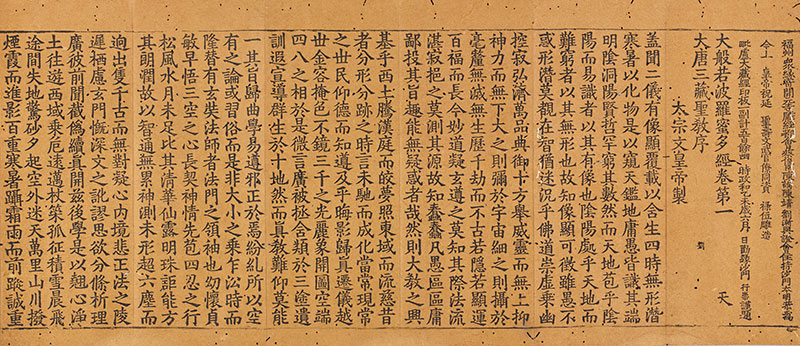 福州衆緣寄開元寺雕經都會蔡俊臣陳詢陳靖劉漸與證會住持沙門本明恭爲
今上 皇帝祝延 聖壽文武官僚同資 祿位雕造
毗盧大藏經印板一副計五百餘函 時政和乙未歲八月 日勸緣沙門 行崇謹題
大般若波羅蜜多經卷第一 天
大唐三藏聖教序 劉
太宗文皇帝製
蓋聞二儀有像顯覆載以含生四時無形潜
寒暑以化物是以窺天鑑地庸愚皆識其端
明陰洞陽賢哲罕窮其數然而天地苞乎陰
陽而易識者以其有像也陰陽處乎天地而
難窮者以其無形也故知像顯可徵雖愚不
惑形潜莫覩在智猶迷況乎佛道崇虛乘幽
控寂弘濟萬品典御十方舉威靈而無上抑
神力而無下大之則彌於宇宙細之則攝於
毫釐無滅無生歷千劫而不古若隱若顯運
百福而長今妙道凝玄遵之莫知其際法流
湛寂挹之莫測其源故知蠢蠢凡愚區區庸
鄙投其旨趣能無疑或者哉然則大教之興
基乎西土騰漢庭而皎夢照東域而流慈昔
者分形分跡之時言未馳而成化當常現常
之世民仰德而知遵及乎晦影歸眞遷儀越
世金容掩色不鏡三千之光麗象開圖空端
四八之相於是微言廣被拯含類於三途遺
訓遐宣導群生於十地然而眞教難仰莫能
一其旨歸曲學易遵邪正於焉紛糺所以空
有之論或習俗而是非大小之乘乍沿時而
隆替有玄奘法師者法門之領袖也幼懷貞
敏早悟三空之心長契神情先苞四忍之行
松風水月未足比其清華仙露明珠詎能方
其朗潤故以智通無累神測未形超六塵而
迥出隻千古而無對凝心内境悲正法之陵
遲栖慮玄門慨深文之訛謬思欲分條析理
廣彼前聞截僞續眞開兹後學是以翹心淨
土往遊西域乘危遠邁杖策孤征積雪晨飛
途間失地驚砂夕起空外迷天萬里山川撥
煙霞而進影百重寒暑躡霜雨而前蹤誠重